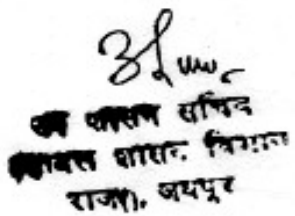 उप शासन सचिव
स्वायत्त शासन विभाग
राज०, जयपुर